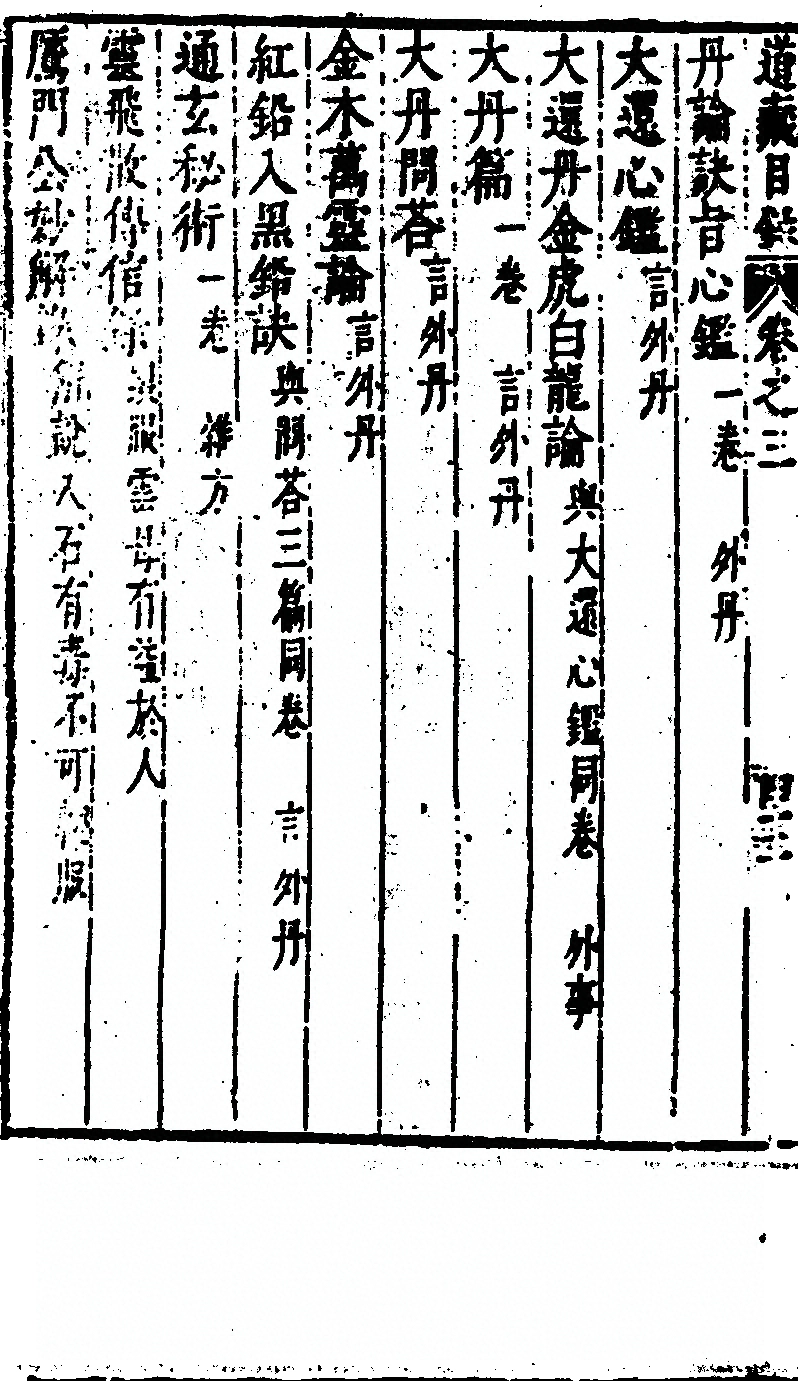 道藏目錄 卷之三
丹論訣旨心鑑 一卷 外丹
大還心鑑 言外丹
大還丹金虎白龍論 與大還心鑑同卷 外事
大丹篇 一卷 言外丹
大丹問荅 言外丹
金木萬靈論 言外丹
紅鉛入黑鉛訣 與問荅三篇同卷 言外丹
通玄秘術 一卷 雜方
雲飛散傳信錄 服雲母有益於人
鴈門公妙解錄 解說入石有毒不可輕服